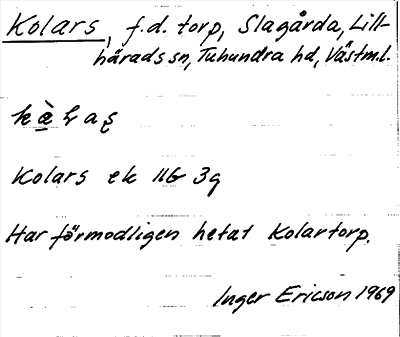 Kolars, f.d. torp, Slagårda, Lill-
härads sn, Tuhundra hd, Västm.l.
Kolars ek 11G 3g
Har förmodligen hetat Kolartorp.
Inger Ericson 1969